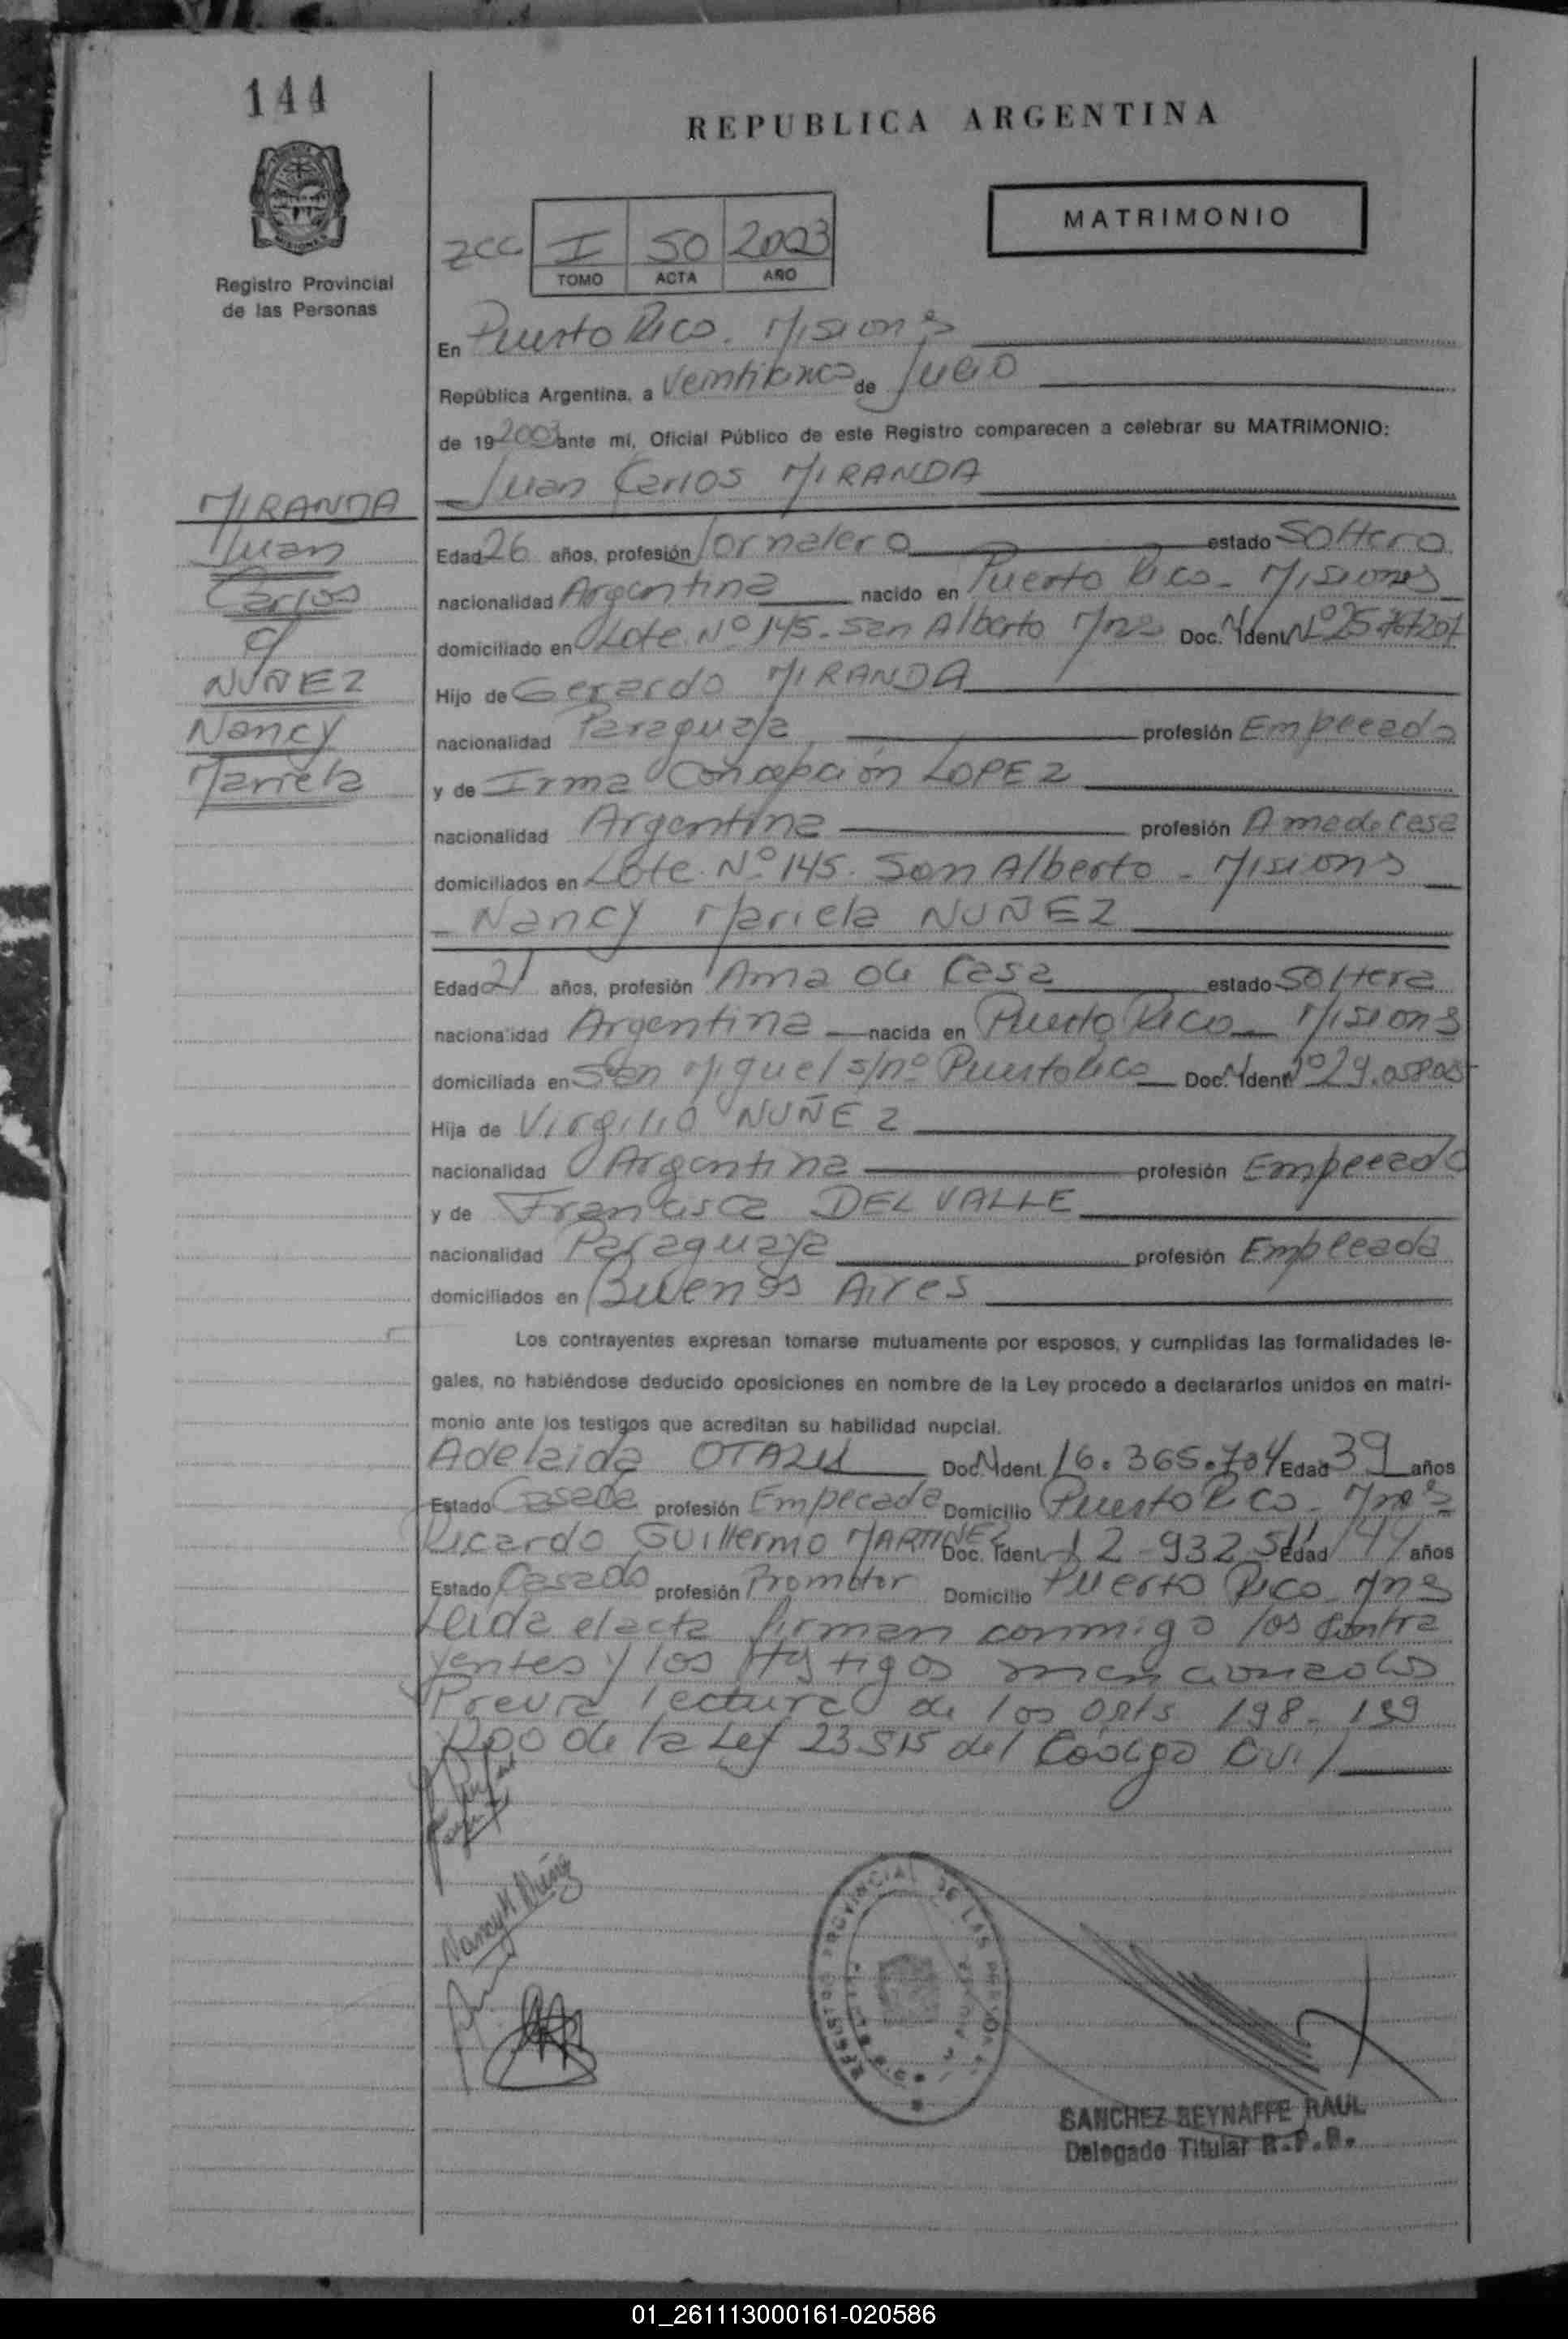 144
REPUBLICA ARGENTINA
MATRIMONIO
I 50 2003
TOMO ACTA AÑO
Registro Provincial
de las Personas
En Puerto Rico. Misiones
República Argentina, a veinticinco de Julio
de 19 2003 ante mi, Oficial Público de este Registro comparecen a celebrar su MATRIMONIO:
Juan Carlos MIRANDA
MIRANDA
Juan
Carlos
c/
NUÑEZ
Nancy
Mariela
Edad 26 años, profesión Jornalero estado Soltero
nacionalidad Argentina nacido en Puerto Rico - Misiones
domiciliado en Lote Nº 145. San Alberto Mnes Doc. N. Ident Nº
Hijo de Gerardo MIRANDA
nacionalidad Paraguaya profesión Empleado
y de Irma Concepción LOPEZ
nacionalidad Argentina profesión Ama de Casa
domiciliados en Lote. Nº 145. San Alberto - Misiones
Nancy Mariela NUÑEZ
Edad 21 años, profesión Ama de Casa estado Soltera
nacionalidad Argentina nacida en Puerto Rico Misiones
domiciliada en San Miguel s/nº Puerto Rico Doc. N. Ident Nº
Hija de Virgilio NUÑEZ
nacionalidad Argentina profesión Empleado
y de Francisca DEL VALLE
nacionalidad Paraguaya profesión Empleada
domiciliados en Buenos Aires
Los contrayentes expresan tomarse mutuamente por esposos, y cumplidas las formalidades le-
gales, no habiéndose deducido oposiciones en nombre de la Ley procedo a declararlos unidos en matri-
monio ante los testigos que acreditan su habilidad nupcial.
Adelaida OTAZU Doc. N. Ident. 16.365.704 Edad 39 años
Estado Casada profesión Empleada Domicilio Puerto Rico - Mnes
Ricardo Guillermo MARTINEZ Doc. Ident. 12-932 511 Edad 44 años
Estado Casado profesión Promotor Domicilio Puerto Rico Mns
Leida el acta firman conmigo los contra
yentes y los testigos mencionados
Previa lectura de los arts 198 - 199
y 200 de la Ley 23.515 del Código Civil
Nancy M. Nuñez
REGISTRO PROVINCIAL DE LAS PERSONAS
SANCHEZ BEYNAFFE RAUL
Delegado Titular R.P.P.
01_261113000161-020586